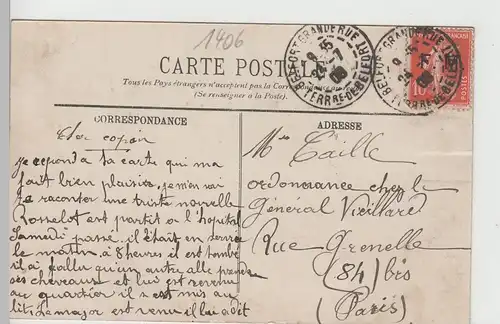 1406
CARTE POSTALE
Tous les Pays étrangers n'acceptent pas la Correspondance
(Se renseigner à la Poste).
BELFORT GRANDE RUE
TERRRE-DE-BELFORT
BELFORT GRANDE RUE
TERRRE-DE-BELFORT
10
POSTES
CORRESPONDANCE
ADRESSE
Cher copain
je repond a ta carte qui ma
fait bien plaisir, je m'en vai
te raconter une triste nouvelle
Rosselot est partit a l'hopital
Samedi passé il était en service
le matin a 8 heures il est tombé
il a fallu qu'un autre alle prendre
ses chevaux et lui est revenu
au quartier il s'est mis au
lit, le major est venu il lui a dit
Mr Caille
ordonnance chez le
Général Vieillard
Rue Grenelle
(84) bis
(Paris)